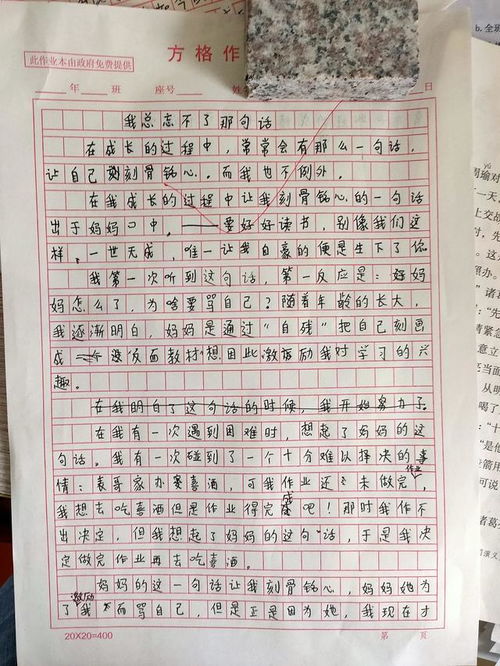 此作业本由政府免费提供
方格作
年 班 座号 日
我总忘不了那句话
在成长的过程中，常常会有那么一句话，
让自己刻骨铭心。而我也不例外。
在我成长的过程中让我刻骨铭心的一句话
出于妈妈口中。——要好好读书，别像我们这
样，一世无成，唯一让我自豪的便是生下了你
我第一次听到这句话，第一反应是：好妈
妈怎么了，为啥要骂自己？随着年龄的长大，
我逐渐明白，妈妈是通过“自残”把自己刻画
成一个反面教材想因此激励我对学习的兴
趣。
在我明白了这句话的时候，我开始努力了。
在我有一次遇到困难时，想起了妈妈的这
句话。我有一次碰到了一个十分难以择决的事
情：表哥家办宴喜酒，可我作业还未做完，
我想去吃喜酒但是作业得完成吧！那时我作不
出决定，但我想起了妈妈的这句话，于是我决
定做完作业再去吃喜酒。
妈妈的这一句话让我刻骨铭心，妈妈她为
了激励我而骂自己，但是正是因为她，我现在才
20X20=400
第 页
b.全班
周瑜对
一天，
上交战